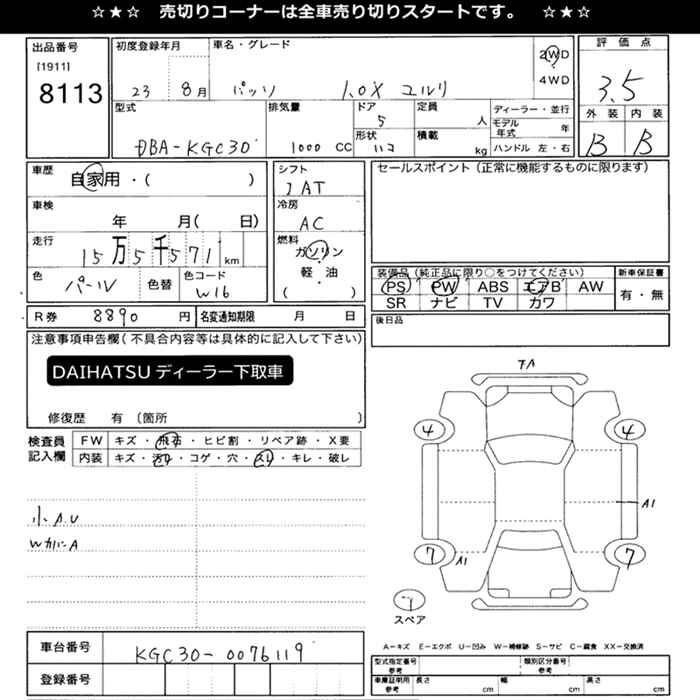 ☆★☆ 売切りコーナーは全車売り切りスタートです。 ☆★☆
出品番号
[1911]
8113
初度登録年月
23 8月
車名・グレード
パッソ 1.0X ユルリ
2WD
4WD
評価点
3.5
外装 内装
B B
型式
DBA-KGC30
排気量
1000 CC
ドア
5
形状
ハコ
定員
人
積載
kg
ディーラー・並行
モデル年式 年
ハンドル 左・右
車歴
自家用・( )
車検
年 月( 日)
走行
15万5千571km
色
パール
色替
色コード
W16
シフト
IAT
冷房
AC
燃料
ガソリン
・
軽・油
( )
セールスポイント(正常に機能するものに限ります)
装備品(純正品に限り○をつけてください)
PS PW ABS エアB AW
SR ナビ TV カワ
新車保証書
有・無
後日品
R券 8890円
名変通知期限 月 日
注意事項申告欄(不具合内容等は具体的に記入して下さい)
DAIHATSU ディーラー下取車
修復歴 有〔箇所 〕
検査員
記入欄
FW キズ・飛石・ヒビ割・リペア跡・X要
内装 キズ・汚れ・コゲ・穴・スレ・キレ・破レ
小A.U
WカバーA
4
4
A1
7
A1
7
スペア
A-キズ E-エクボ U-凹み W-補修跡 S-サビ C-腐食 XX-交換済
車台番号
KGC30-0076119
登録番号
型式指定番号
参考
類別区分番号
参考
車庫証明用
参考
長さ cm
幅 cm
高さ cm